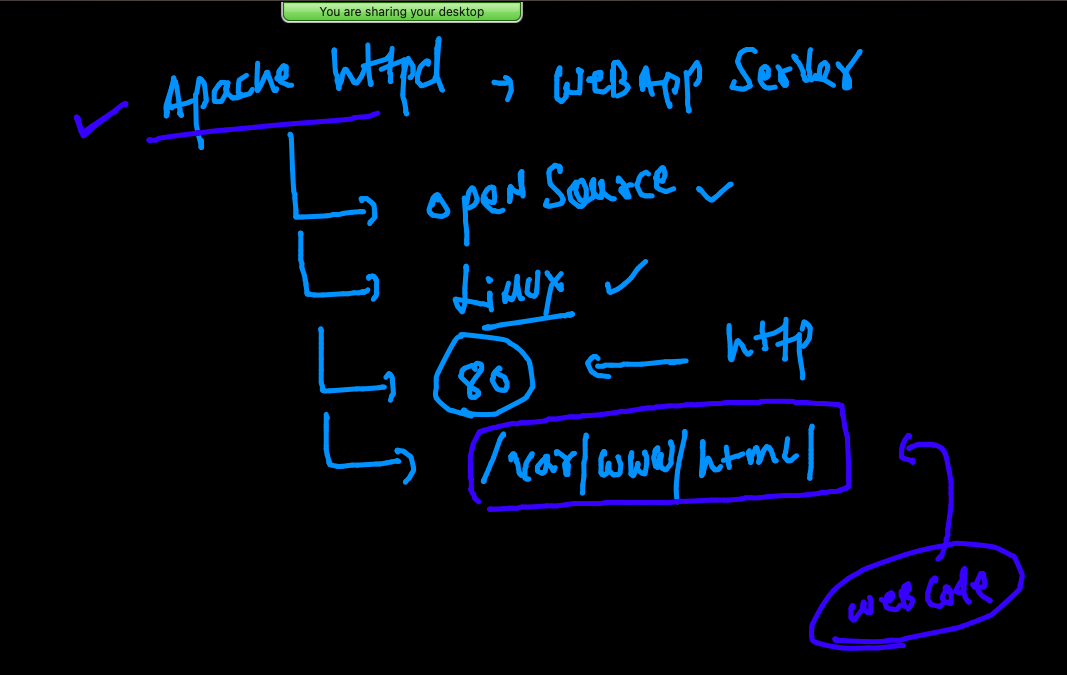 You are sharing your desktop
Apache httpd → WEBApp Server
open Source
Linux
80 ← http
/var/www/html/
WEB Code